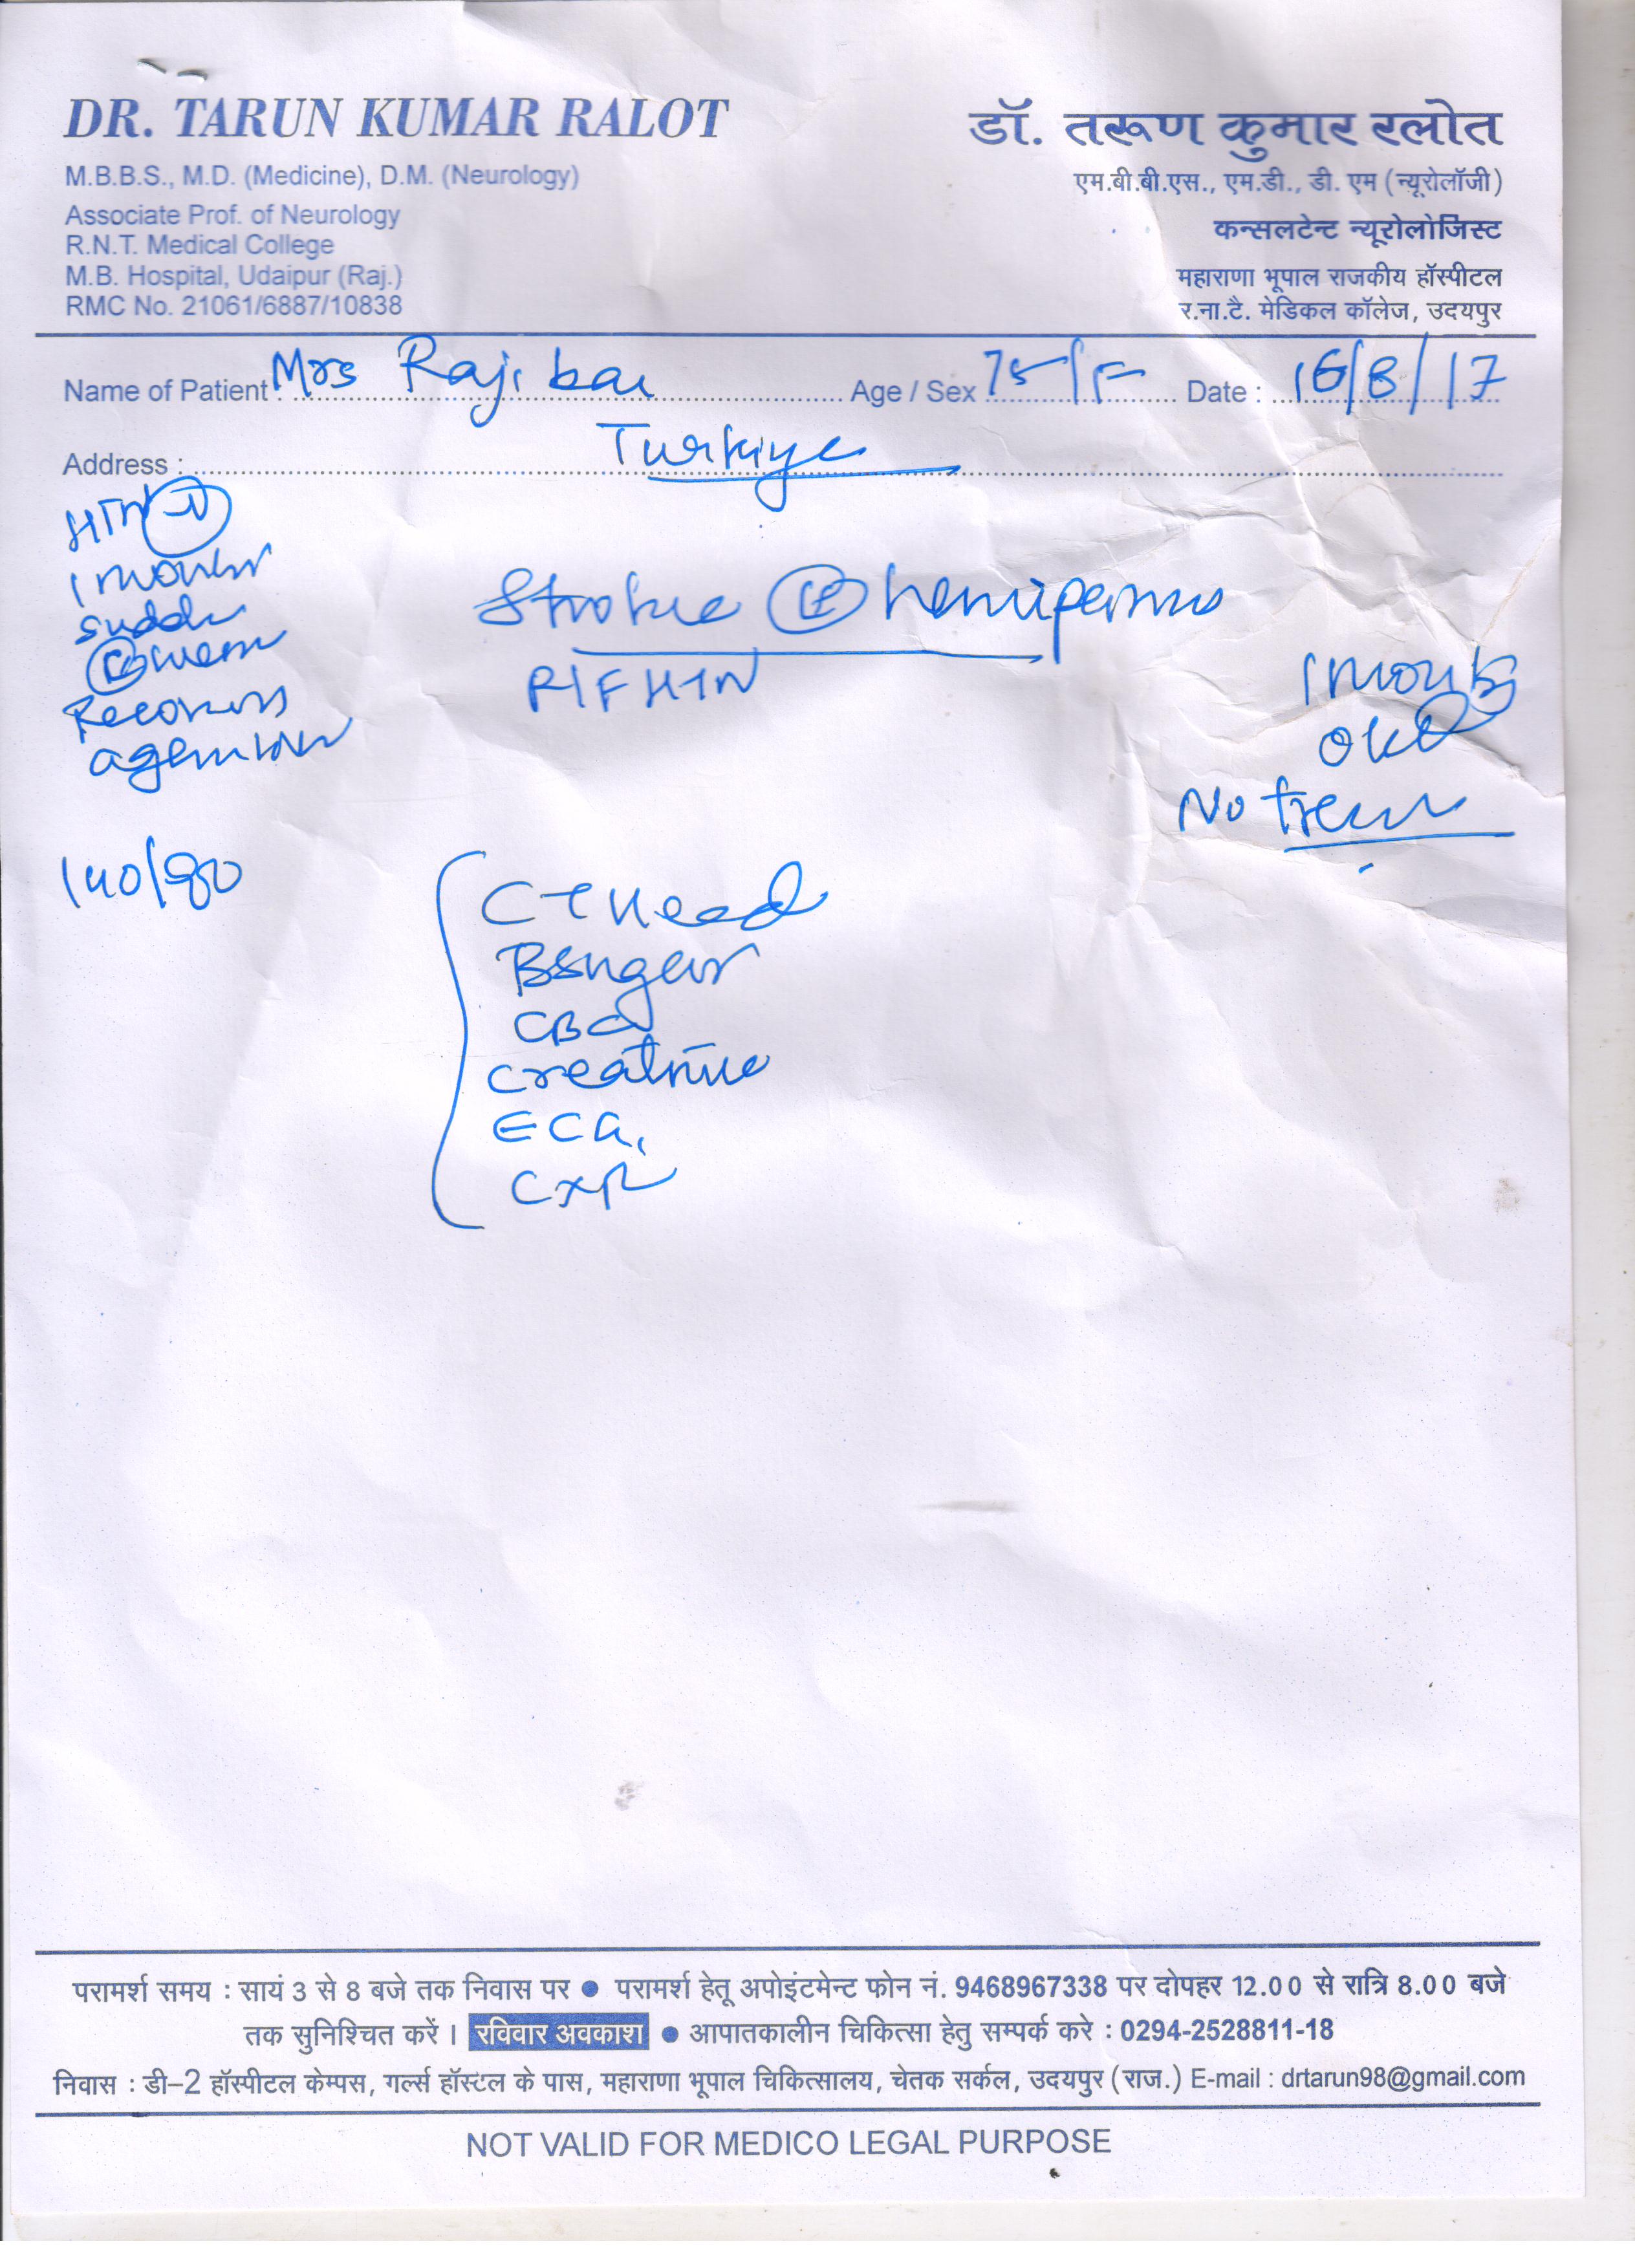 DR. TARUN KUMAR RALOT
M.B.B.S., M.D. (Medicine), D.M. (Neurology)
Associate Prof. of Neurology
R.N.T. Medical College
M.B. Hospital, Udaipur (Raj.)
RMC No. 21061/6887/10838
डॉ. तरूण कुमार रलोत
एम.बी.बी.एस., एम.डी., डी. एम (न्यूरोलॉजी)
कन्सलटेन्ट न्यूरोलोजिस्ट
महाराणा भूपाल राजकीय हॉस्पीटल
र.ना.टै. मेडिकल कॉलेज, उदयपुर
Name of Patient : Mrs Raji bai Age / Sex 75/F Date : 16/8/17
Address :
HTN
1 month
Stroke hemiparesis
R/F HTN
1 month
No
140/80
CT Head
B sugar
CBC
creatinine
ECG,
CXR
परामर्श समय : सायं 3 से 8 बजे तक निवास पर ● परामर्श हेतू अपोइंटमेन्ट फोन नं. 9468967338 पर दोपहर 12.00 से रात्रि 8.00 बजे
तक सुनिश्चित करें । रविवार अवकाश ● आपातकालीन चिकित्सा हेतु सम्पर्क करे : 0294-2528811-18
निवास : डी–2 हॉस्पीटल केम्पस, गर्ल्स हॉस्टल के पास, महाराणा भूपाल चिकित्सालय, चेतक सर्कल, उदयपुर (राज.) E-mail : drtarun98@gmail.com
NOT VALID FOR MEDICO LEGAL PURPOSE